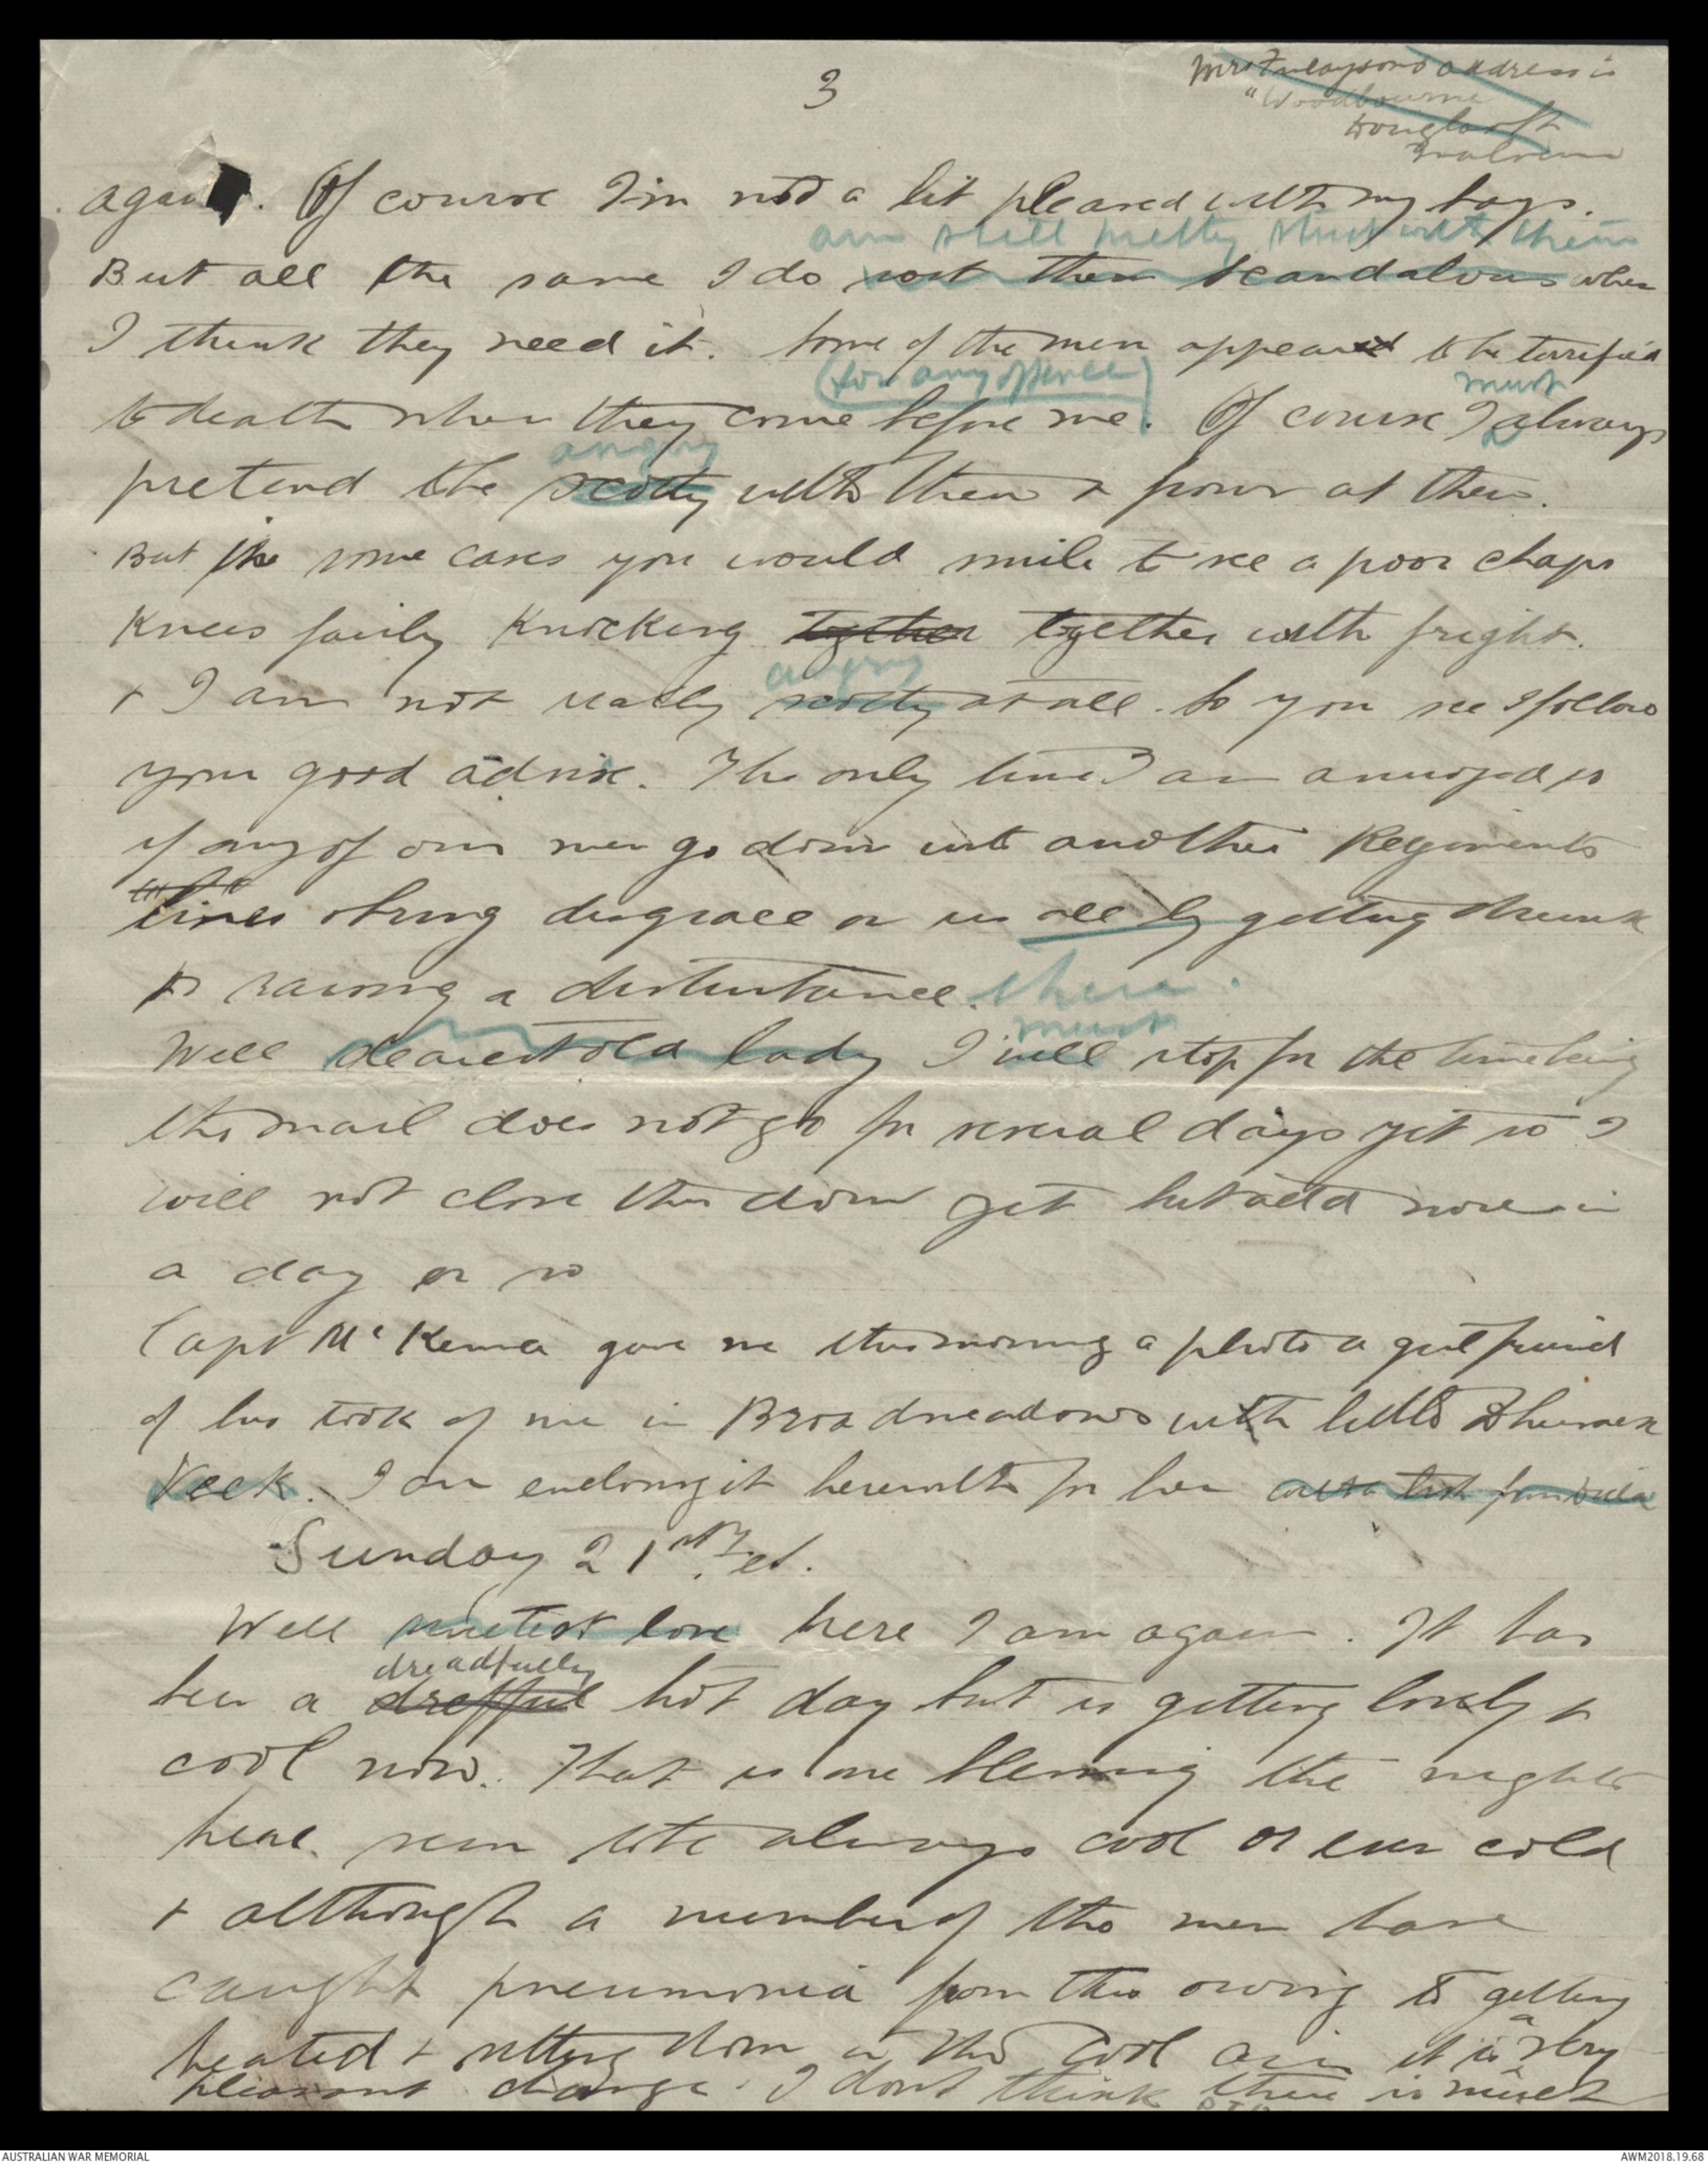 3
Mrs Finlaysons address is
"Woodbourne
Douglas St
Malvern
again. Of course I'm not a bit pleased with my boys.
am still pretty strict with them
But all the same I do roast them scandalous when
I think they need it. Some of the men appeared to be terrified
(for any offence) must
to death when they come before me. Of course I always
angry
pretend to be scotty with them & frown at them.
But in some cases you would smile to see a poor chaps
Knees fairly Knocking together together with fright.
angry
& I am not really scotty at all. So you see I follow
your good advice. The only time I am annoyed is
if any of our men go down into another Regiments
lines & bring disgrace on us all by getting drunk
& raising a disturbance. there.
must
Well dearest old lady I will stop for the time being
the mail does not go for several days yet so I
will not close this down yet but add more in
a day or so
Capt McKenna gave me this morning a photo a girl friend
of his took of me in Broadmeadows with little Drummer
Veck. I am enclosing it herewith for her
Sunday 21st Feb.
Well sweetest love here I am again. It has
dreadfully
been a dreffful hot day but is getting lovely &
cool now. That is one blessing the nights
here seem to be always cool or even cold
& although a number of the men have
caught pneumonia from this owing to getting
heated & sitting down in the cool air it is a very
pleasant change. I dont think there is much
PTO